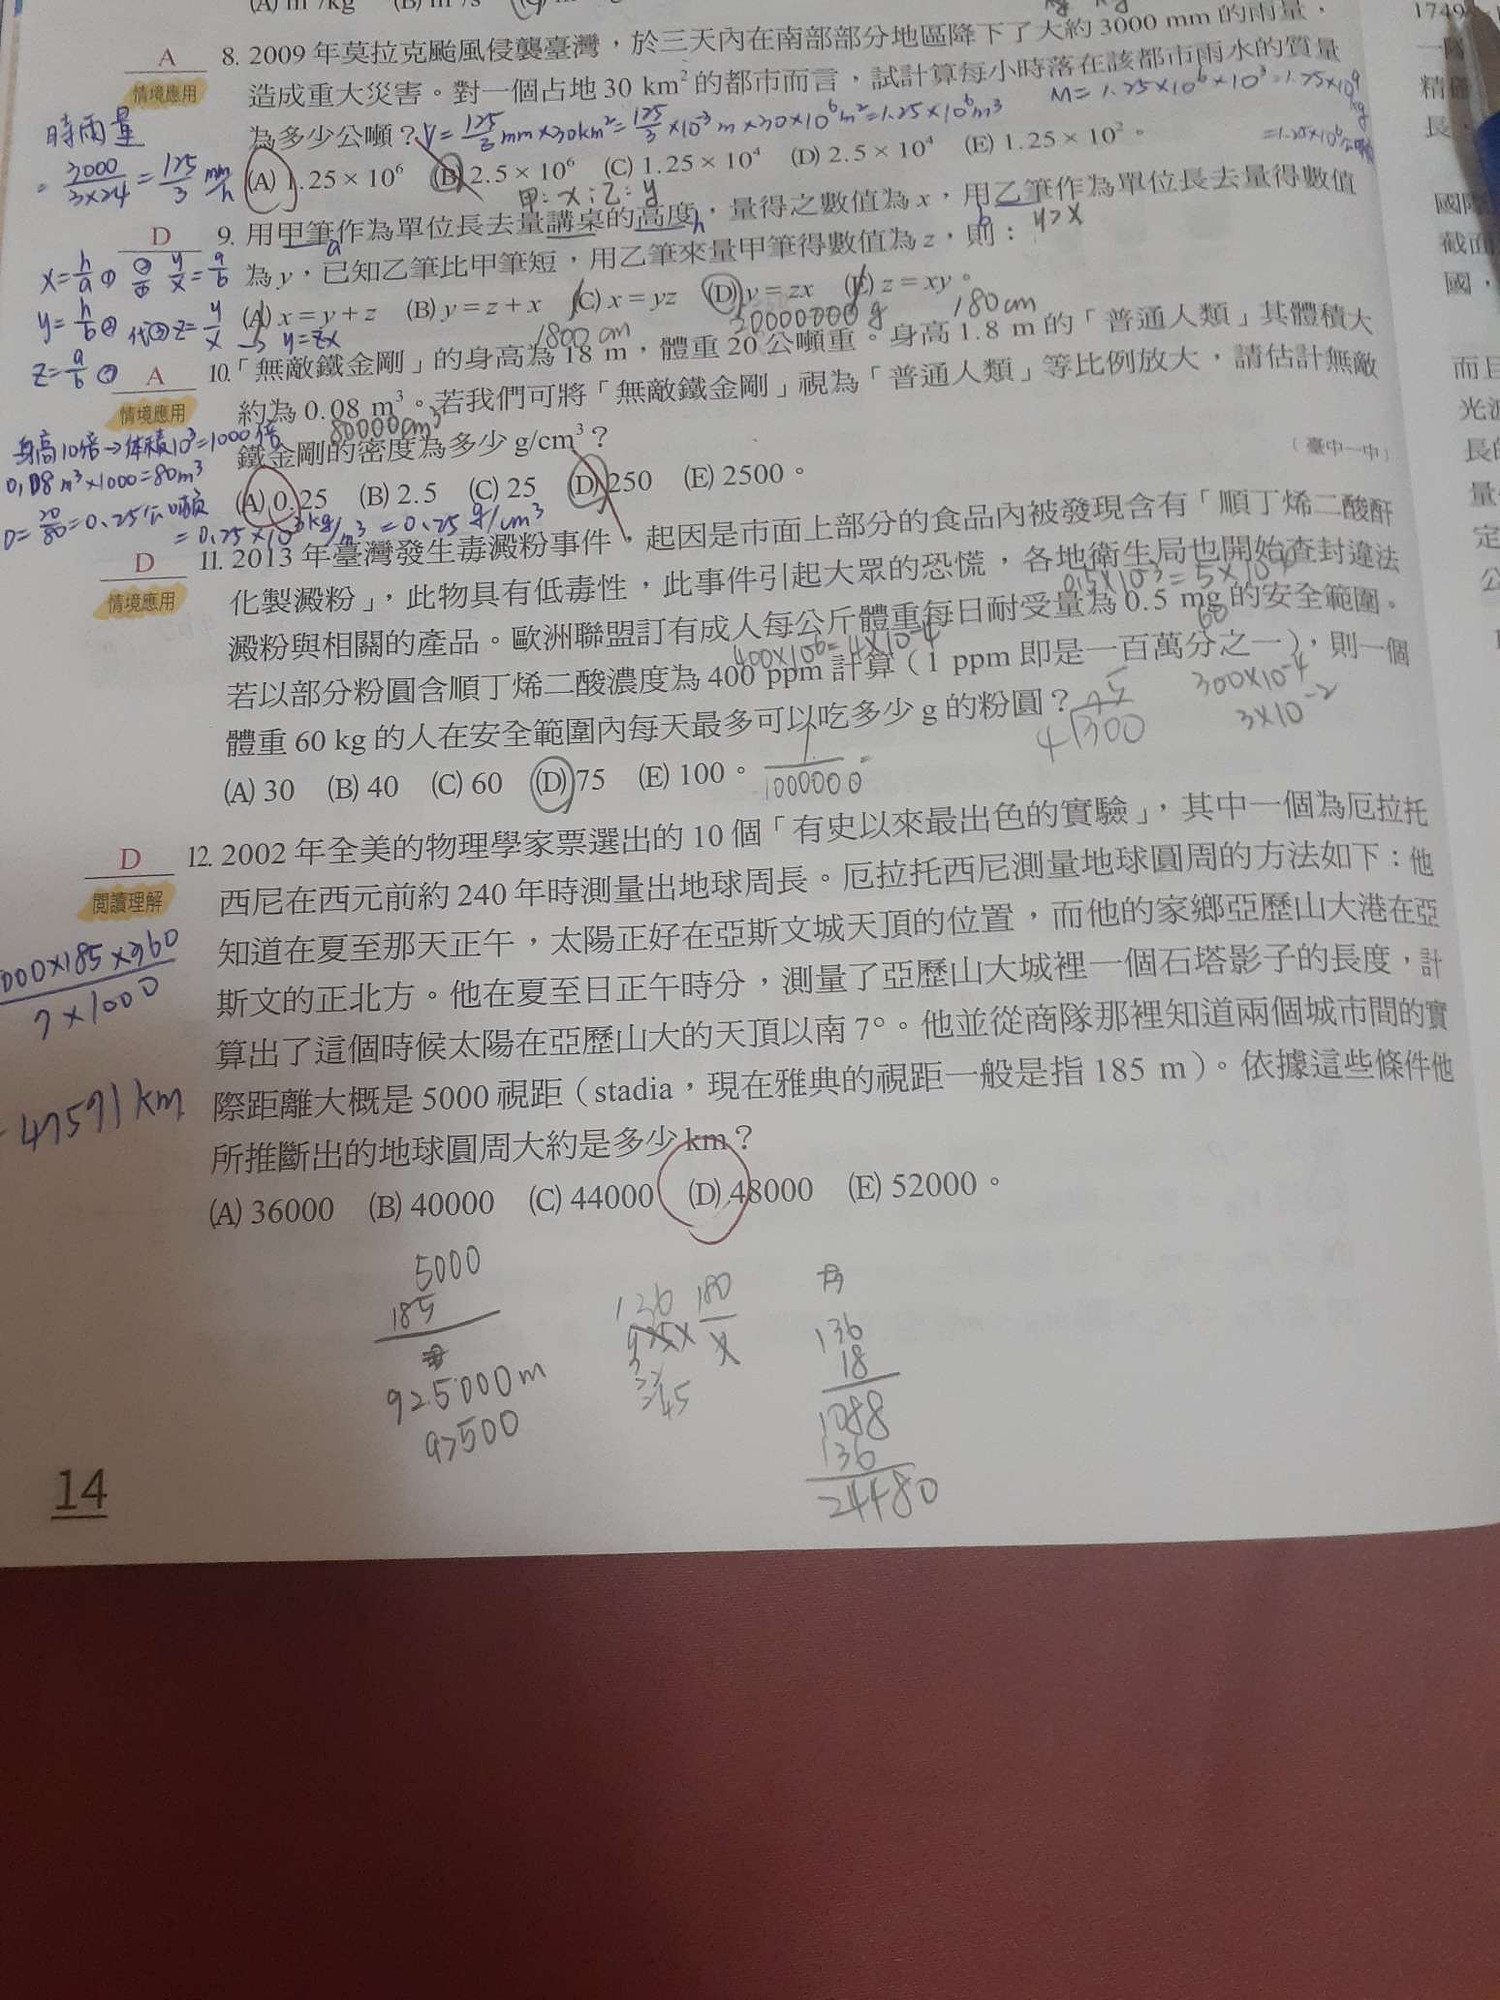 A
8. 2009年莫拉克颱風侵襲臺灣，於三天內在南部部分地區降下了大約3000 mm的雨量，
情境應用
造成重大災害。對一個占地30 km²的都市而言，試計算每小時落在該都市雨水的質量
M = 1.25×10⁶×10³=1.25×10⁹ kg
為多少公噸？V = 125/3 mm×30km² = 125/3 ×10⁻³ m×30×10⁶ m² = 1.25×10⁶m³
=1.25×10⁶公噸
時雨量
= 3000/3×24 = 125/3 mm/h
(A) 1.25 × 10⁶ (B) 2.5 × 10⁶ (C) 1.25 × 10⁴ (D) 2.5 × 10⁴ (E) 1.25 × 10²。
甲：x；乙：y
D
9. 用甲筆作為單位長去量講桌的高度，量得之數值為 x，用乙筆作為單位長去量得數值
a h b y>x
為 y，已知乙筆比甲筆短，用乙筆來量甲筆得數值為 z，則：
(A) x = y + z (B) y = z + x (C) x = yz (D) y = zx (E) z = xy。
x = h/a ① ②/① y/x = a/b
y = h/b ② 代③ z = y/x → y = zx
z = a/b ③
1800 cm 20000000 g 180 cm
A
10.「無敵鐵金剛」的身高為 18 m，體重 20 公噸重。身高 1.8 m 的「普通人類」其體積大
情境應用
約為 0.08 m³。若我們可將「無敵鐵金剛」視為「普通人類」等比例放大，請估計無敵
80000cm³
鐵金剛的密度為多少 g/cm³？
（臺中一中）
(A) 0.25 (B) 2.5 (C) 25 (D) 250 (E) 2500。
身高10倍→体積10³=1000倍
0.08 m³×1000=80m³
D= 20/80 = 0.25公噸
= 0.25×10³kg/m³ = 0.25 g/cm³
D
11. 2013 年臺灣發生毒澱粉事件，起因是市面上部分的食品內被發現含有「順丁烯二酸酐
情境應用
化製澱粉」，此物具有低毒性，此事件引起大眾的恐慌，各地衛生局也開始查封違法
澱粉與相關的產品。歐洲聯盟訂有成人每公斤體重每日耐受量為 0.5 mg 的安全範圍。
60
若以部分粉圓含順丁烯二酸濃度為 400 ppm 計算（1 ppm 即是一百萬分之一），則一個
300×10⁻⁴
3×10⁻²
體重 60 kg 的人在安全範圍內每天最多可以吃多少 g 的粉圓？
75
4)300
(A) 30 (B) 40 (C) 60 (D) 75 (E) 100。
1/1000000 =
D
12. 2002 年全美的物理學家票選出的 10 個「有史以來最出色的實驗」，其中一個為厄拉托
閱讀理解
西尼在西元前約 240 年時測量出地球周長。厄拉托西尼測量地球圓周的方法如下：他
知道在夏至那天正午，太陽正好在亞斯文城天頂的位置，而他的家鄉亞歷山大港在亞
斯文的正北方。他在夏至日正午時分，測量了亞歷山大城裡一個石塔影子的長度，計
算出了這個時候太陽在亞歷山大的天頂以南 7°。他並從商隊那裡知道兩個城市間的實
際距離大概是 5000 視距（stadia，現在雅典的視距一般是指 185 m）。依據這些條件他
所推斷出的地球圓周大約是多少 km？
(A) 36000 (B) 40000 (C) 44000 (D) 48000 (E) 52000。
000×185×360
7×1000
47571 km
5000
185
925000m
92500
136 180
136
18
1088
136
24480
14